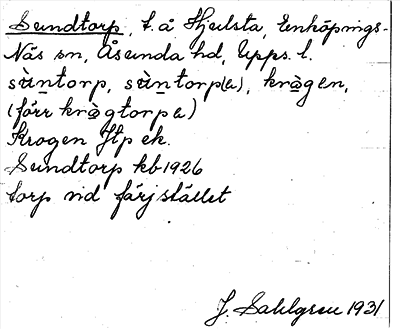 Sundtorp, t. å Hjulsta, Enköpings-
Näs sn, Åsunda hd, Upps. l.
sùn̠torp, sùn̠torp(a), krågen,
(förr krågtorpa)
Krogen Htp ek.
Sundtorp kb 1926
torp vid färjstället
J. Sahlgren 1931